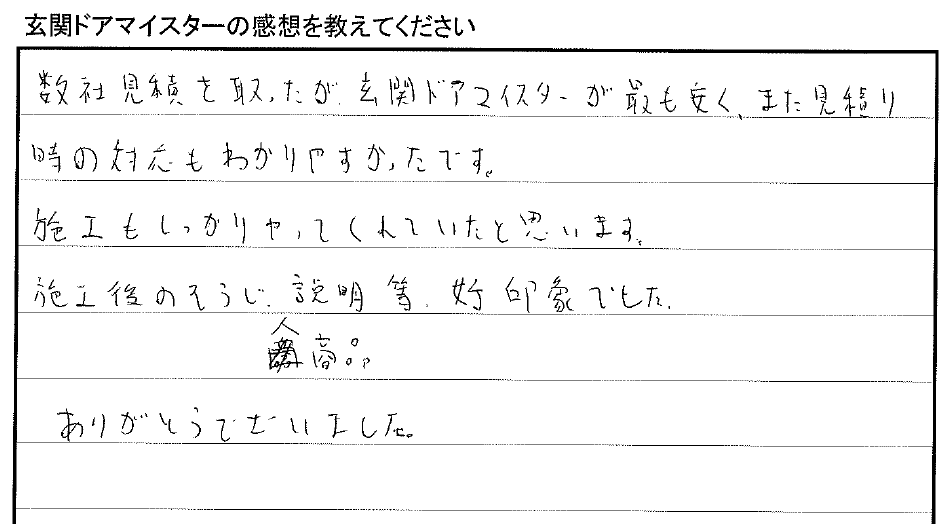 玄関ドアマイスターの感想を教えてください
数社見積を取ったが、玄関ドアマイスターが最も安く、また見積り
時の対応もわかりやすかったです。
施工もしっかりやってくれていたと思います。
施工後のそうじ、説明等、好印象でした。
人
商品
ありがとうございました。